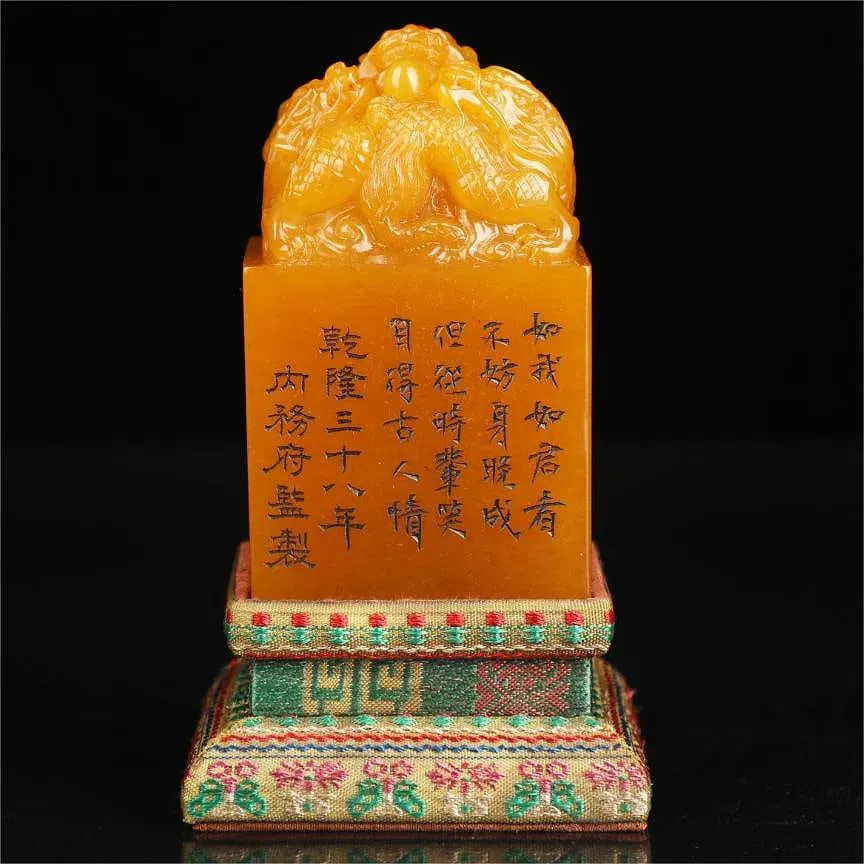 如我如君看
不妨身晚成
但從時輩笑
自得古人情
乾隆三十八年
內務府監製